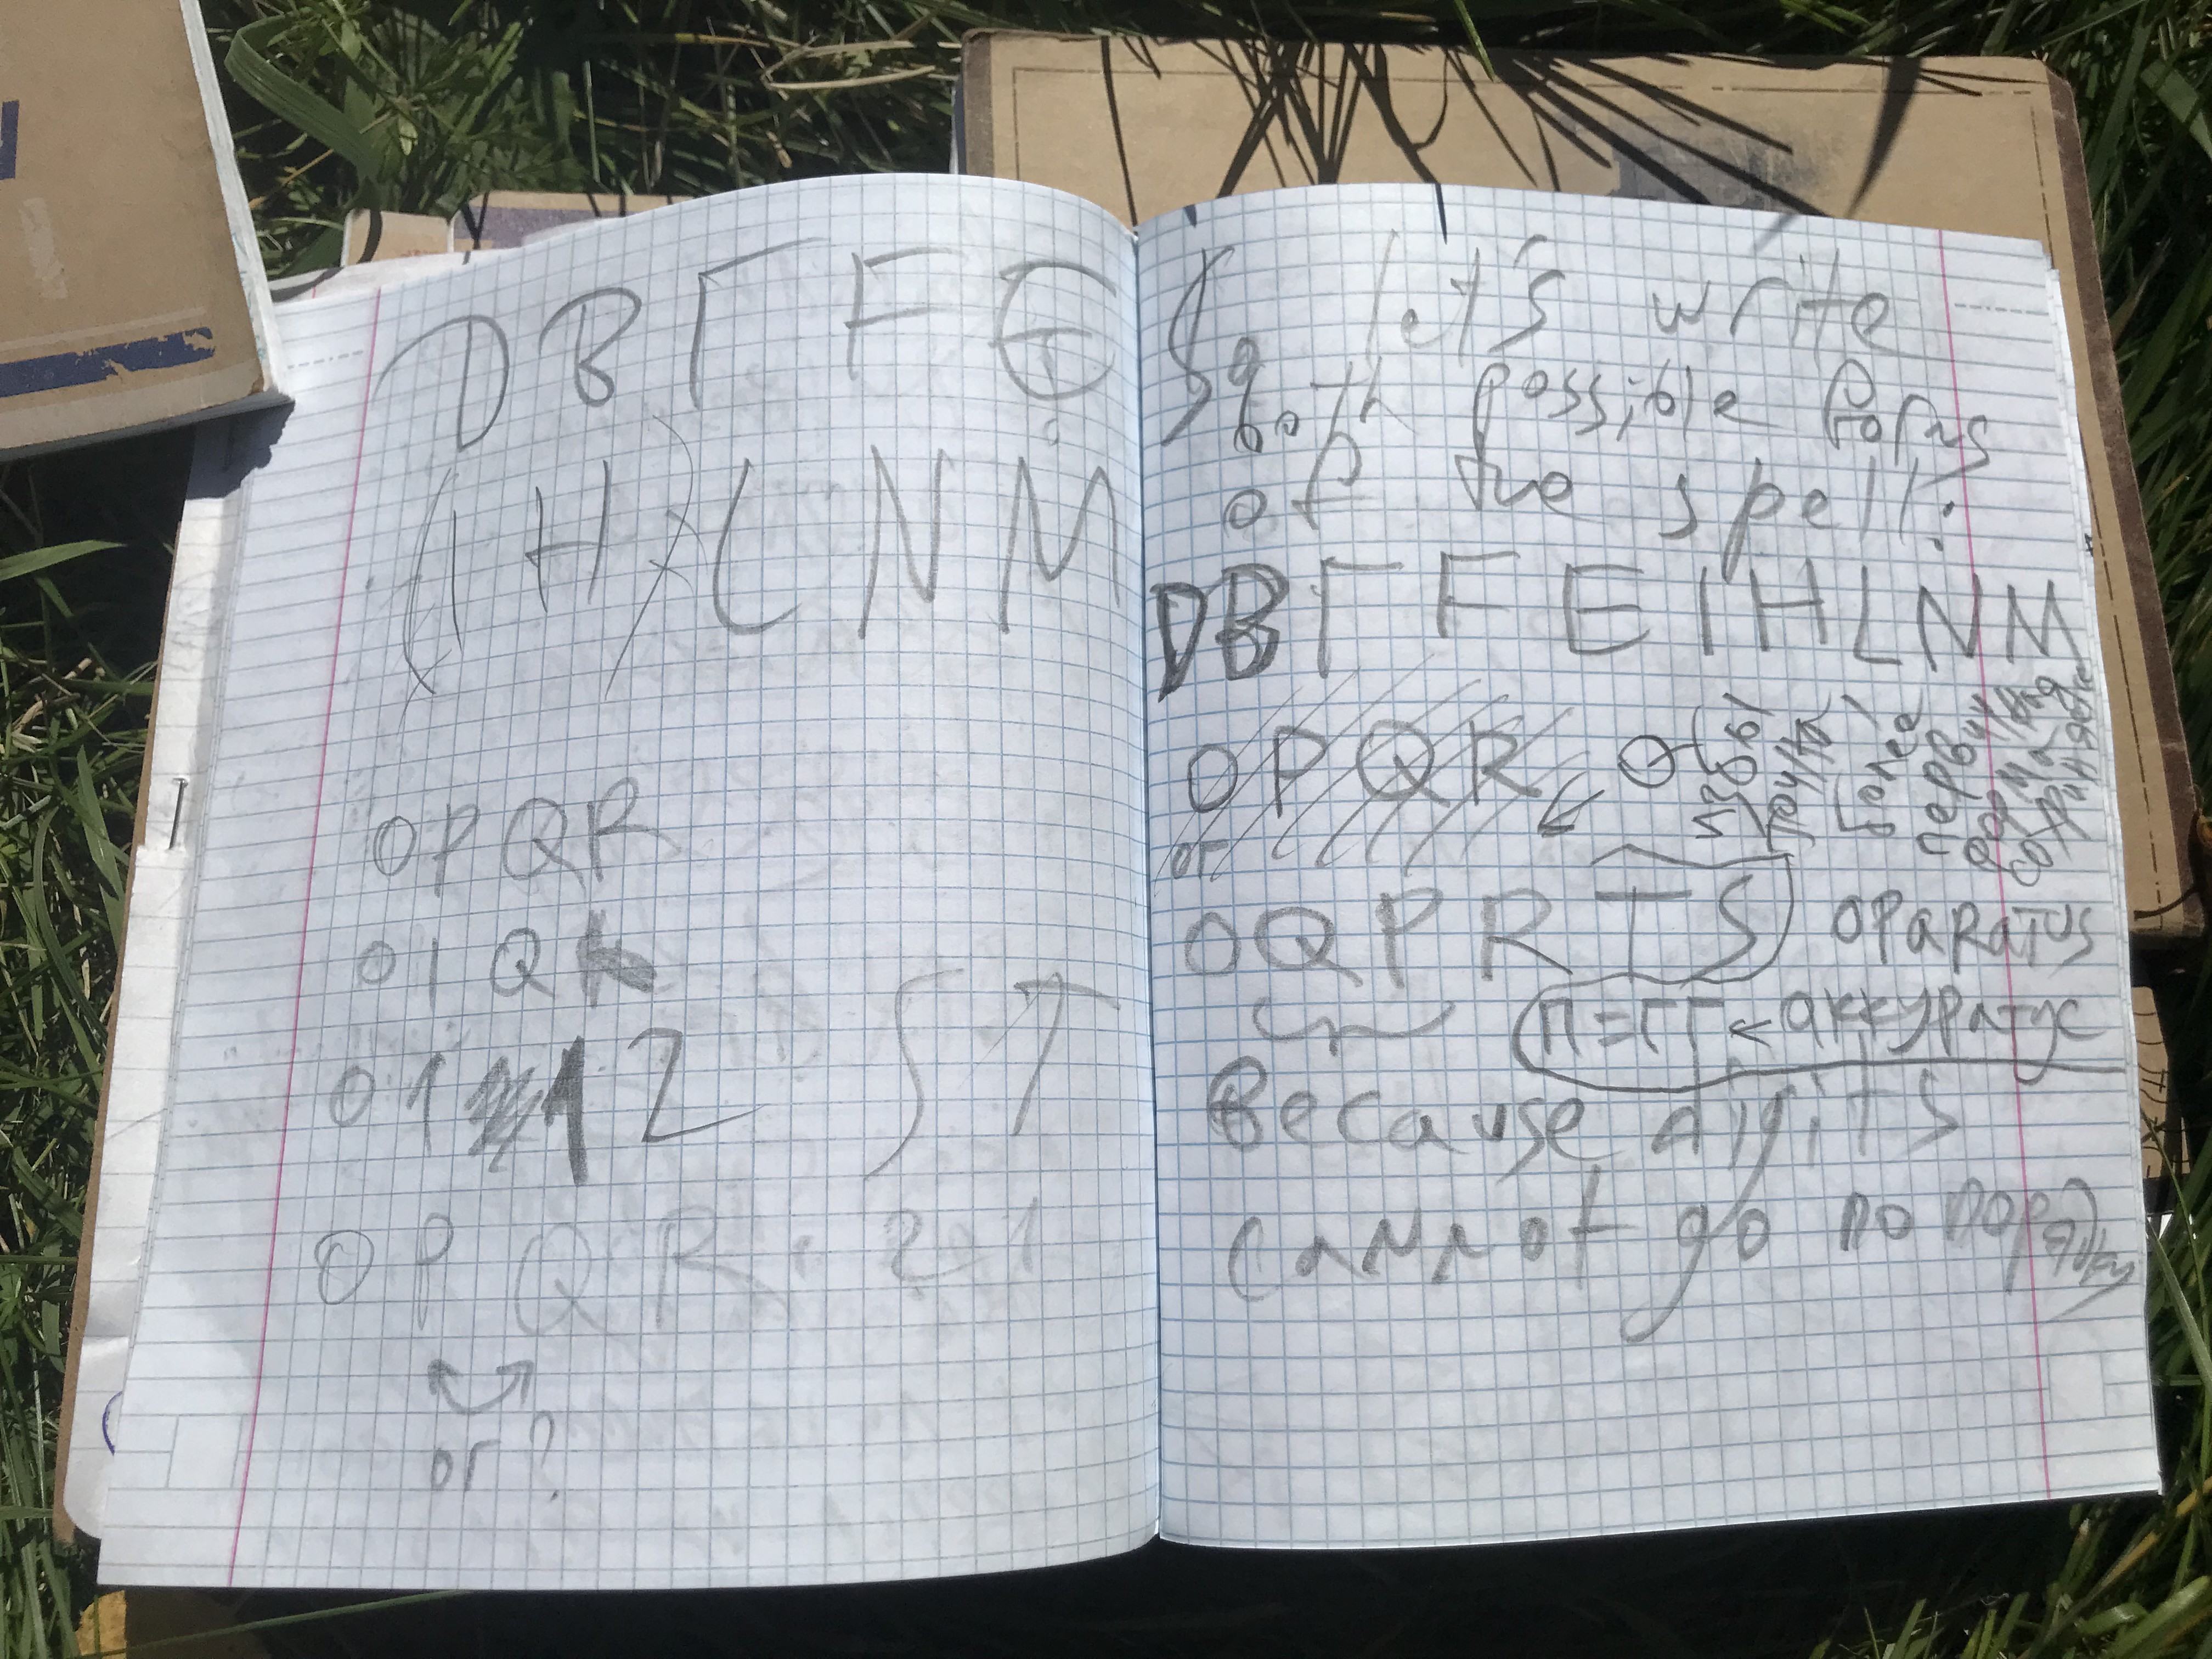 D B Г F E
( I H ) L N M
O P Q R
O I Q
O 1 1 2 S T
O P Q R : 2 0 1
or ?
So let's write
both possible forms
of the spell:
D B Г F E I H L N M
O P Q R ← О
чтобы
более
первичная
форма
сохраняется
or
O Q P R T S OPARATUS
П = ГГ ← аккуратус
Because digits
cannot go по порядку